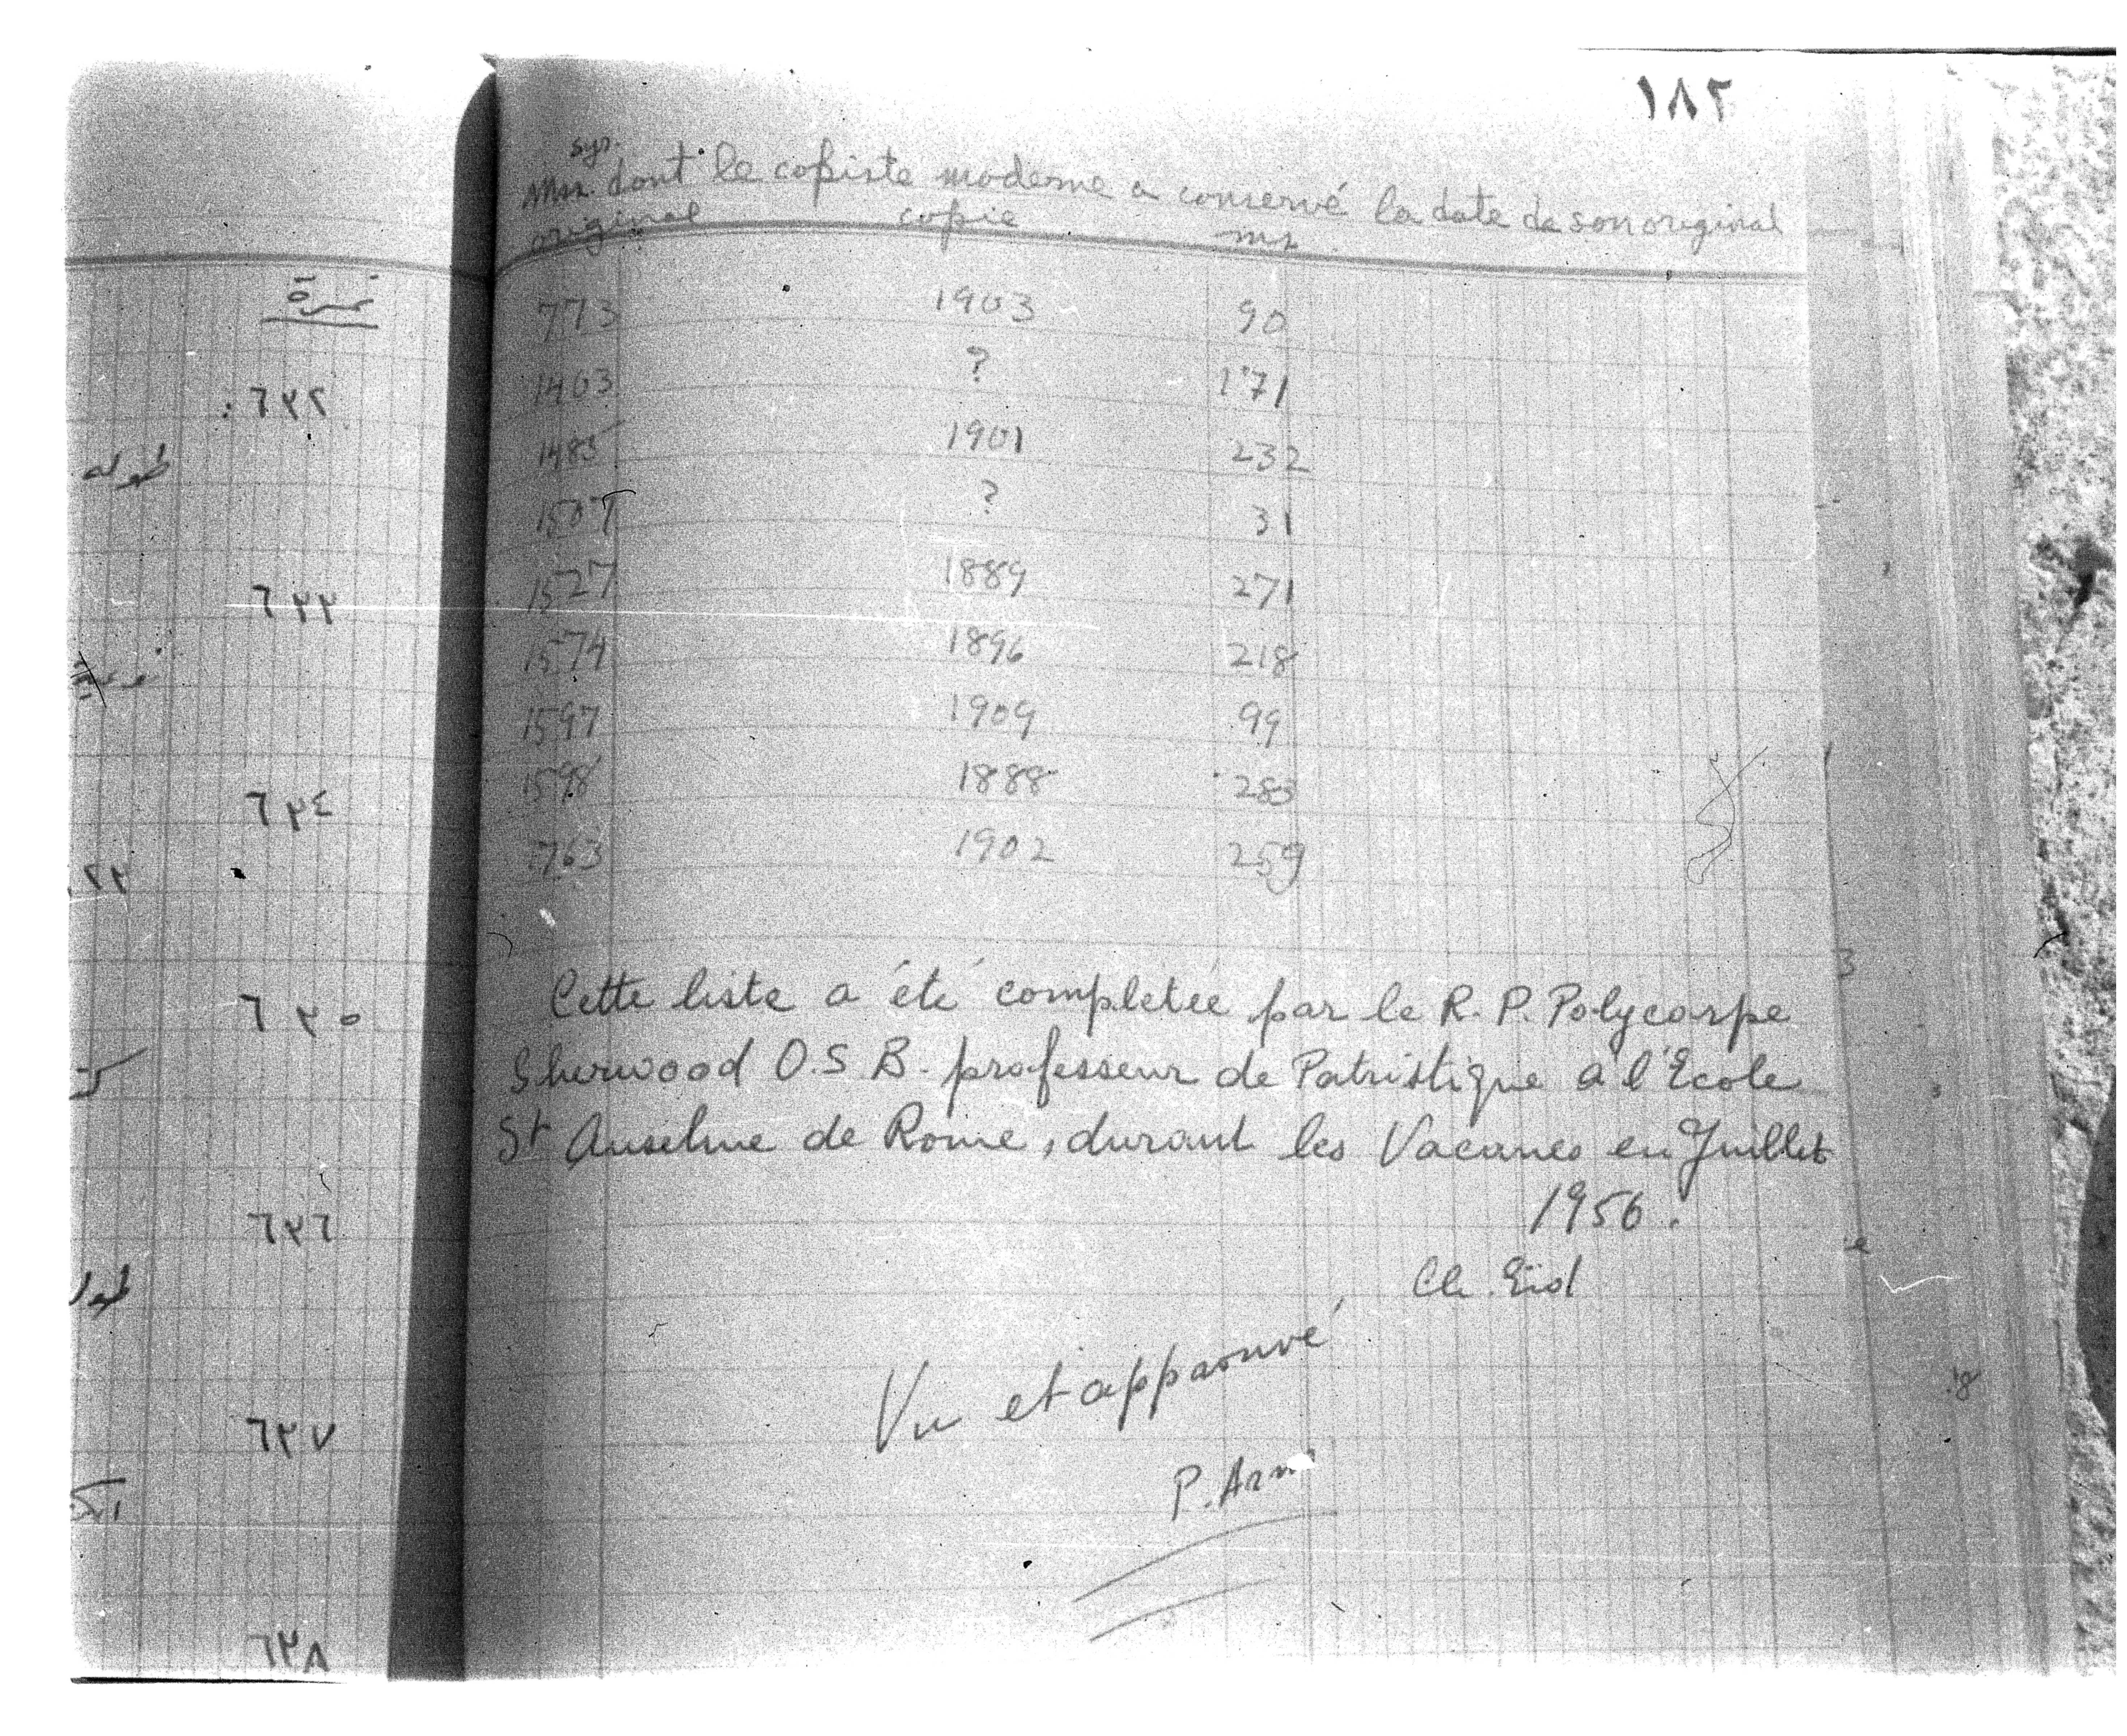 ١٨٢
syr.
Mss. dont le copiste moderne a conservé la date de son original
original copie ms
773 1903 90
1403 ? 171
1485 1901 232
1507 ? 31
1527 1889 271
1574 1896 218
1597 1909 99
1598 1888 283
1763 1902 259
Cette liste a été complétée par le R. P. Polycarpe
Sherwood O.S.B. professeur de Patristique à l'Ecole
St Anselme de Rome, durant les Vacances en Juillet
1956.
Cl. Eid
Vu et approuvé
P.
نمرة
٦٣٢
طوله
٦٣٣
٦٣٤
٦٣٥
٦٣٦
٦٣٧
٦٣٨